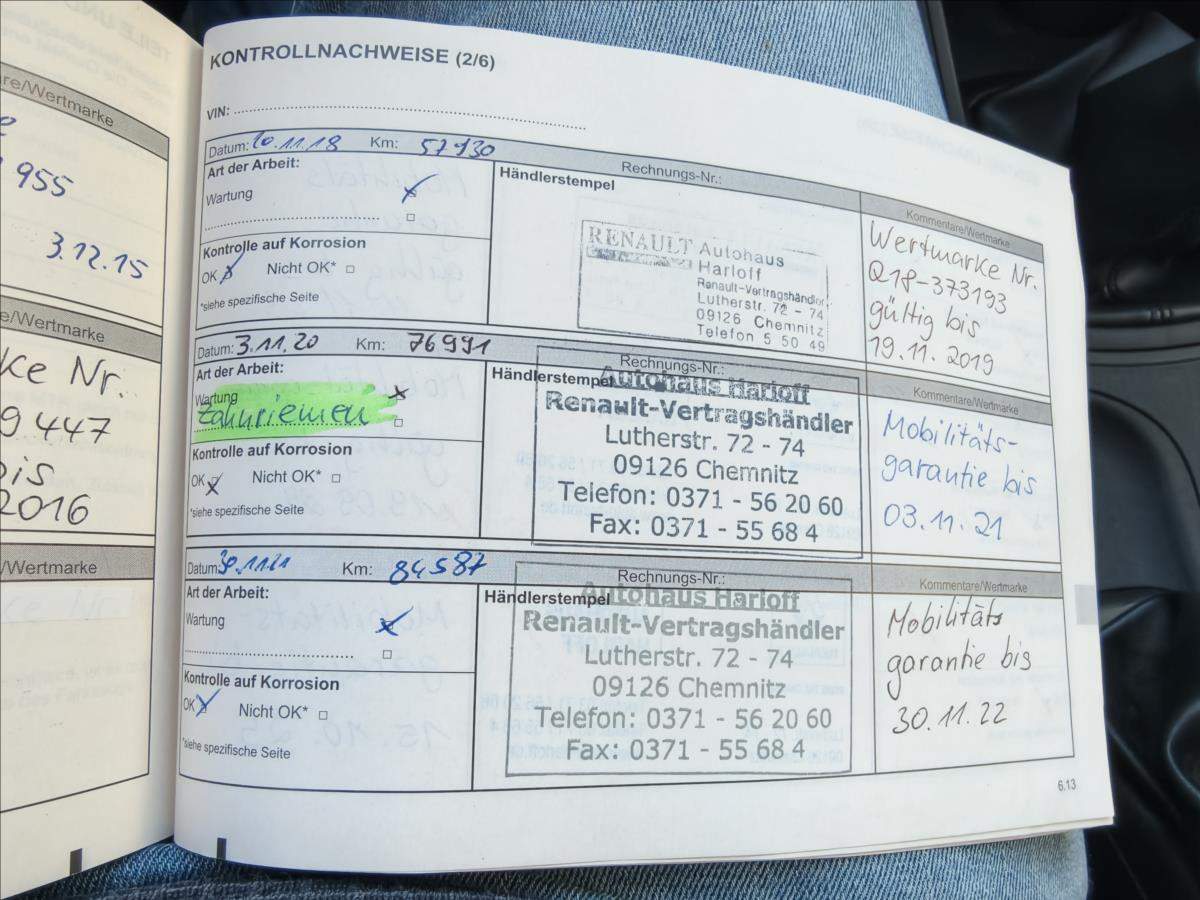 TEILE UND
re/Wertmarke
955
3.12.15
e/Wertmarke
ke Nr.
9 447
bis
2016
/Wertmarke
KONTROLLNACHWEISE (2/6)
VIN:
Datum: 20.11.18 Km: 57930 Rechnungs-Nr.:
Art der Arbeit:
Wartung
Kontrolle auf Korrosion
OK Nicht OK*
*siehe spezifische Seite
Händlerstempel
RENAULT Autohaus
Harloff
Renault-Vertragshändler
Lutherstr. 72 - 74
09126 Chemnitz
Telefon 5 50 49
Kommentare/Wertmarke
Wertmarke Nr.
Q18-373193
gültig bis
19.11.2019
Datum: 3.11.20 Km: 76991 Rechnungs-Nr.:
Art der Arbeit:
Wartung
Zahnriemen
Kontrolle auf Korrosion
OK Nicht OK*
*siehe spezifische Seite
Händlerstempel
Autohaus Harloff
Renault-Vertragshändler
Lutherstr. 72 - 74
09126 Chemnitz
Telefon: 0371 - 56 20 60
Fax: 0371 - 55 68 4
Mobilitäts-
garantie bis
03.11.21
Datum: Km: 84587 Rechnungs-Nr.:
Art der Arbeit:
Wartung
Kontrolle auf Korrosion
OK Nicht OK*
*siehe spezifische Seite
Händlerstempel
Autohaus Harloff
Renault-Vertragshändler
Lutherstr. 72 - 74
09126 Chemnitz
Telefon: 0371 - 56 20 60
Fax: 0371 - 55 68 4
Kommentare/Wertmarke
Mobilitäts
garantie bis
30.11.22
6.13